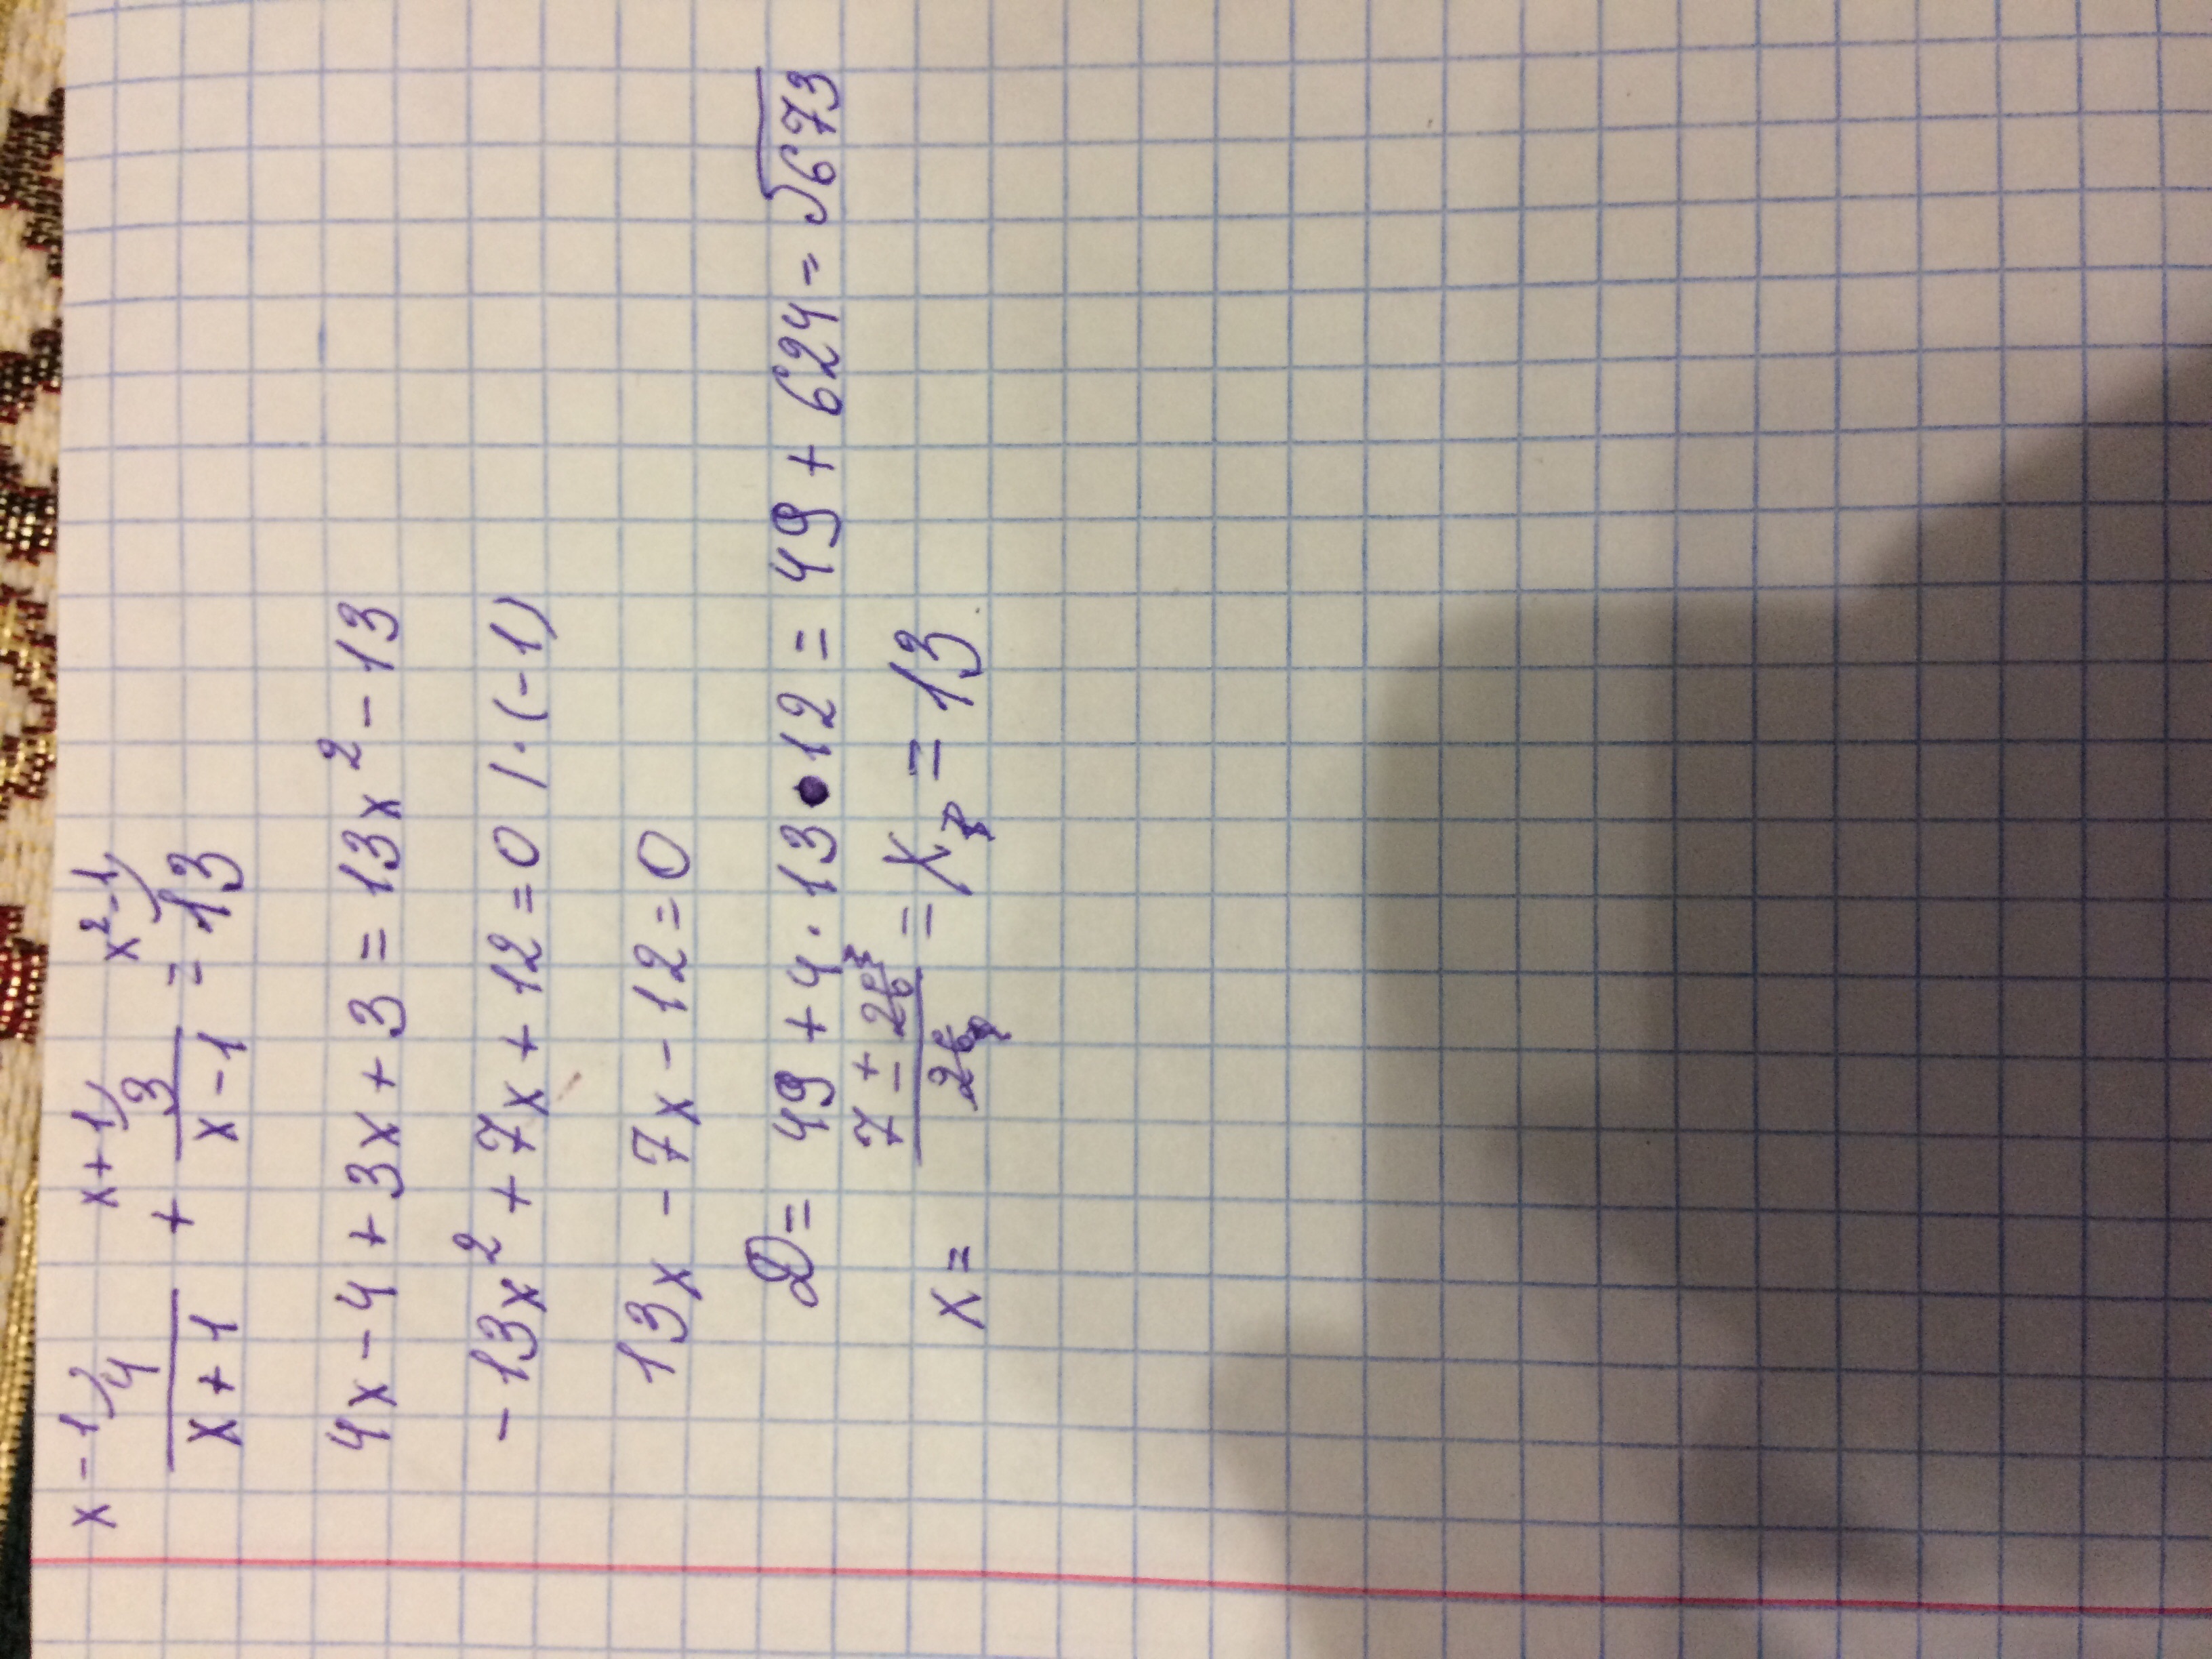 x-1) x+1) x²-1)
4/(x+1) + 3/(x-1) = 13
4x-4+3x+3=13x²-13
-13x²+7x+12=0 |·(-1)
13x-7x-12=0
D= 49+4·13·12=49+624=√673
x= 7±26 = x = 13